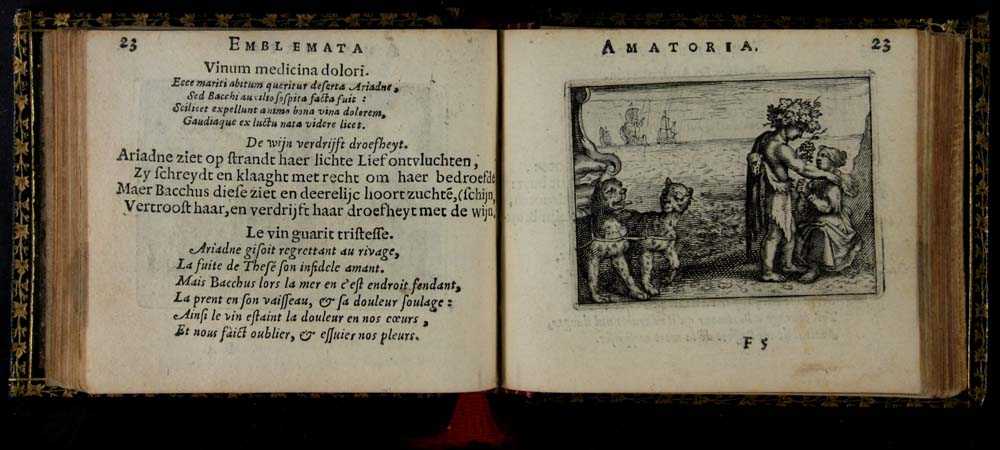 23 EMBLEMATA
Vinum medicina dolori.
Ecce mariti abitum queritur deſerta Ariadne,
Sed Bacchi auxilio ſoſpita facta fuit :
Scilicet expellunt animo bona vina dolorem,
Gaudiaque ex luctu nata videre licet.
De wijn verdrijft droefheyt.
Ariadne ziet op ſtrandt haer lichte Lief ontvluchten,
Zy ſchreydt en klaaght met recht om haer bedroefde
Maer Bacchus dieſe ziet en deerelijc hoort zuchtē, (ſchijn,
Vertrooſt haar, en verdrijft haar droefheyt met de wijn,
Le vin guarit triſteſſe.
Ariadne giſoit regrettant au rivage,
La fuite de Theſé ſon infidele amant.
Mais Bacchus lors la mer en c'eſt endroit fendant,
La prent en ſon vaiſſeau, & ſa douleur ſoulage :
Ainſi le vin eſtaint la douleur en nos cœurs,
Et nous faict oublier, & eſſuier nos pleurs.
AMATORIA. 23
F 5